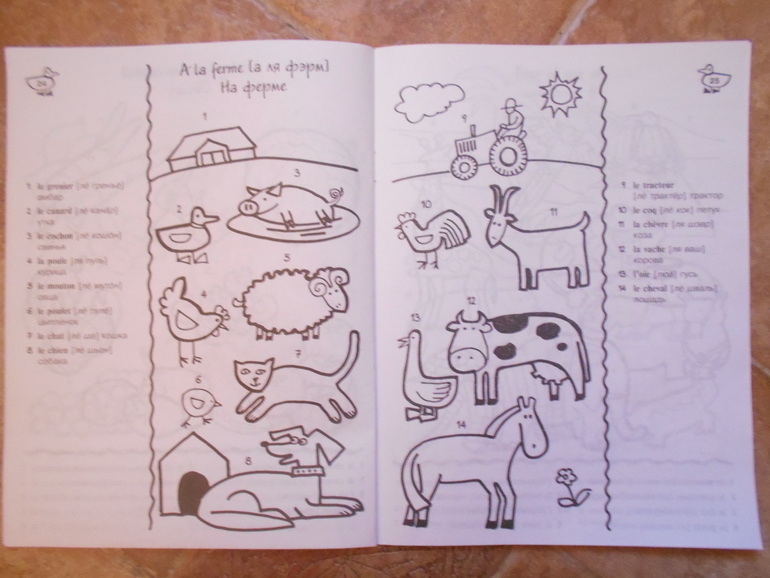 24
A la ferme [а ля фэрм]
На ферме
1 le grenier [лё гренье]
амбар
2 le canard [лё канар]
утка
3 le cochon [лё кошон]
свинья
4 la poule [ля пуль]
курица
5 le mouton [лё мутон]
овца
6 le poulet [лё пуле]
цыплёнок
7 le chat [лё ша] кошка
8 le chien [лё шьен]
собака
1
2
3
4
5
6
7
8
25
9
10
11
12
13
14
9 le tracteur
[лё трактёр] трактор
10 le coq [лё кок] петух
11 la chèvre [ля шэвр]
коза
12 la vache [ля ваш]
корова
13 l'oie [люа] гусь
14 le cheval [лё шваль]
лошадь